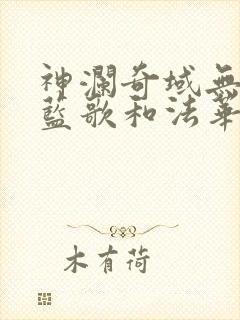 神瀾奇域無
藍歌和法華
木有荷